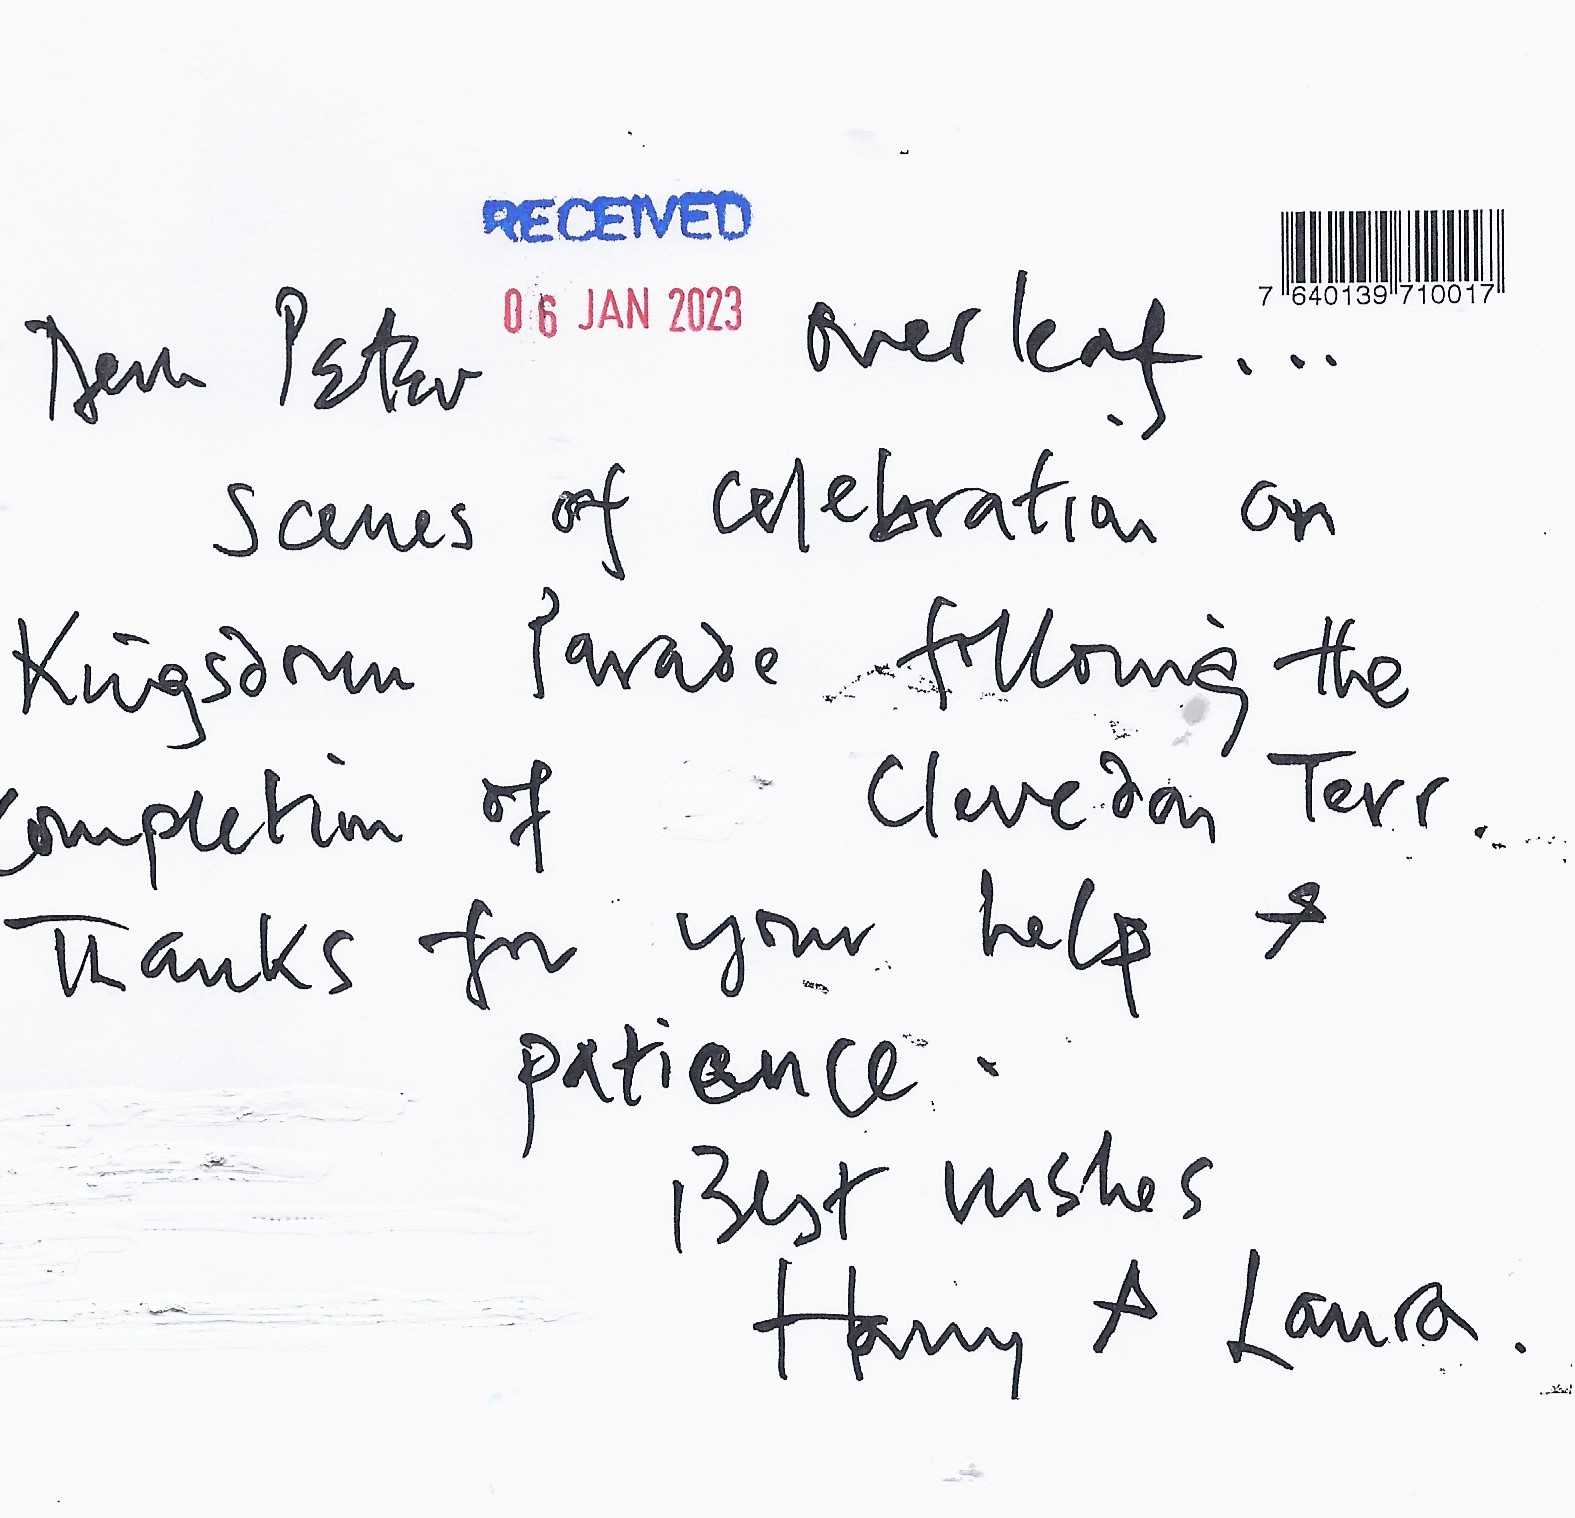 RECEIVED
06 JAN 2023
7 640139 710017
Dear Peter overleaf...
scenes of celebration on
Kingsdown Parade following the
completion of Clevedon Terr.
Thanks for your help &
patience.
Best wishes
Harry & Laura.